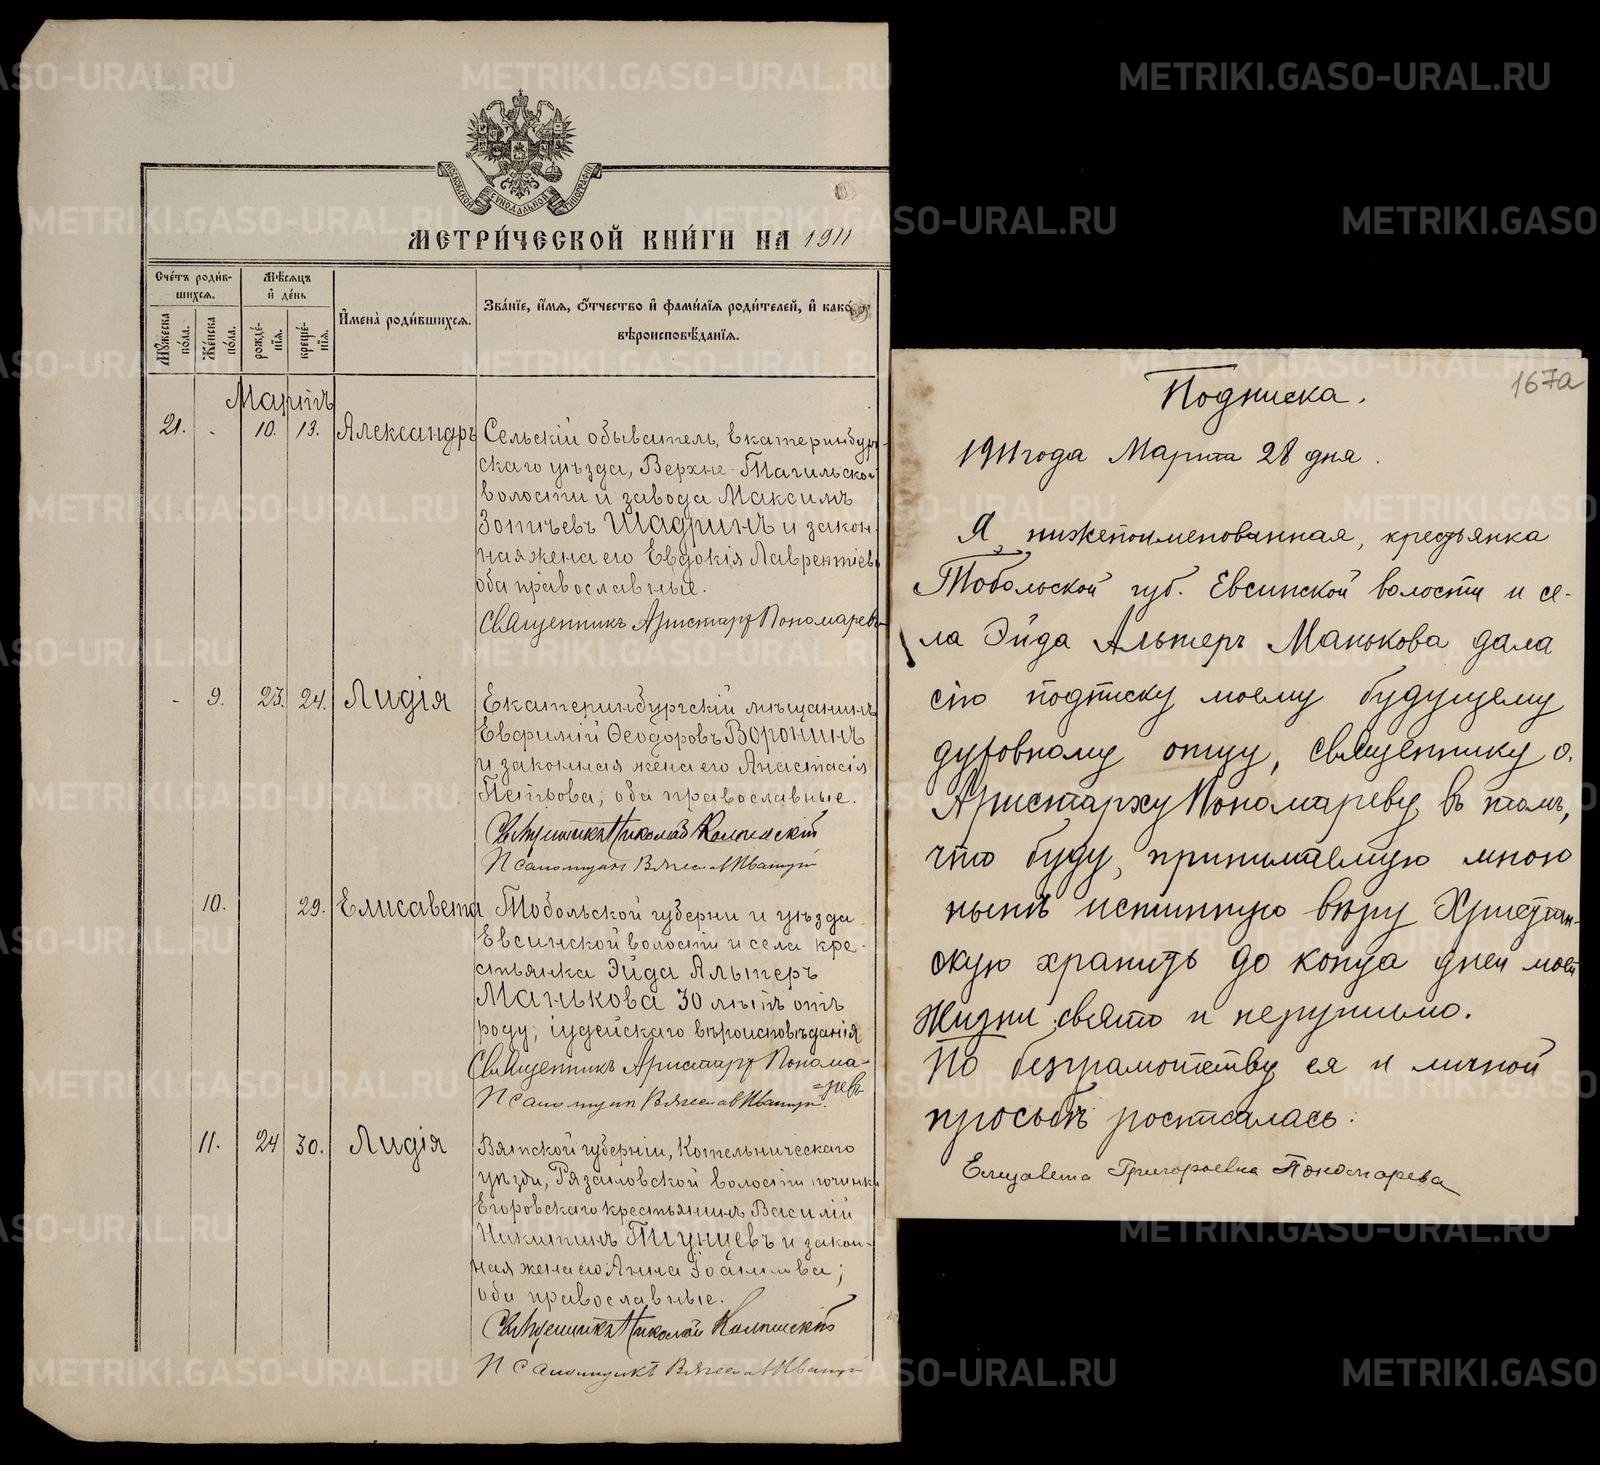 МОСКОВСКОЙ СУНОДАЛЬНОЙ ТИПОГРАФІИ
МЕТРИ́ЧЕСКОЙ КНИ́ГИ НА 1911
Сче́тъ роди́в-
шихся.
Му́жеска по́ла.
Же́нска по́ла.
Мѣ́сяцъ
и҆ де́нь
рожде́-
нїѧ.
креще́-
нїѧ.
И҆мена̀ роди́вшихся.
Зва́нїе, и҆́мя, ѻ҆́тчество и҆ фами́лїя роди́телей, и҆ како́
вѣроисповѣ́данїя.
Мартъ
21. - 10. 13. Александръ
Сельскій обыватель, Екатеринбур-
скаго уѣзда, Верхне-Тагильской
волости и завода Максимъ
Зотѣевъ Шадринъ и закон-
ная жена его Евдокія Лаврентіев
оба православные.
Священникъ Аристархъ Пономаревъ
- 9. 23. 24. Лидія
Екатеринбургскій мѣщанинъ
Евфимій Ѳеодоровъ Воронинъ
и законная жена его Анастасія
Петрова; оба православные.
Священникъ Николай
Псаломщик
10. 29. Елисавета
Тобольской губерни и уѣзда
Евсинской волости и села кре-
стьянка Эйда Альтеръ
Манькова 30 лѣтъ отъ
роду; іудейскаго вѣроисповѣданія
Священникъ Аристархъ Понома-
=ревъ
Псаломщик
11. 24 30. Лидія
Вятской губерніи, Котельническаго
уѣзда, волости починка
Егоровскаго крестьянинъ Василій
Никитинъ и закон-
ная жена его Анна
оба православные.
Священникъ Николай
Псаломщикъ
167а
Подписка.
1911 года Марта 28 дня.
Я, нижепоименованная, крестьянка
Тобольской губ. Евсинской волости и се-
ла Эйда Альтеръ Манькова дала
сію подписку моему будущему
духовному отцу, священнику о.
Аристарху Пономареву въ томъ,
что буду, принимаемую мною
нынѣ истинную вѣру Христіан-
скую хранить до конца дней моей
жизни свято и нерушимо.
По безграмотству ея и личной
просьбѣ росписалась:
Елизавета Григорьевна Пономарева
METRIKI.GASO-URAL.RU